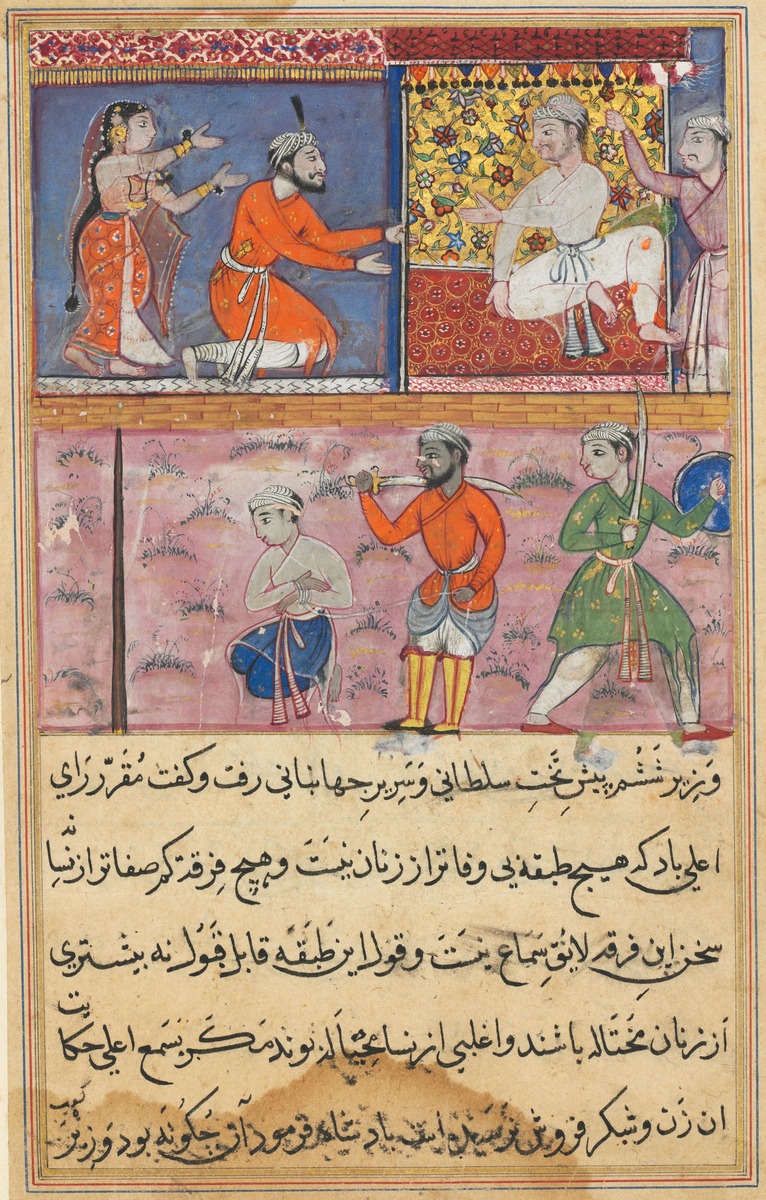 وَزِیر شَشُم پیشِ تَختِ سلطانی وَ سَرِیرِ جهانبانی رفت و کفت مُقَرّرِ رَاي
اعلی باد که هیچ طبقه یی وفا تر از زنان نیست وَ هیچ فِرقه کم صفا تر از نّسا
سخن این فرقه لایُقِ سَماع نیست و قول این طَبَقَه قابل قَبُول نه بیشتری
اَز زنان مُختَاله باشند و اغلبی از نسا مُحتاله بوند مَکَر بسَمع اعلی حکایت
ان زَن و شکر فروش نرسیده است بادشاه فرمود آن چکونَه بود وَزِیر کفت